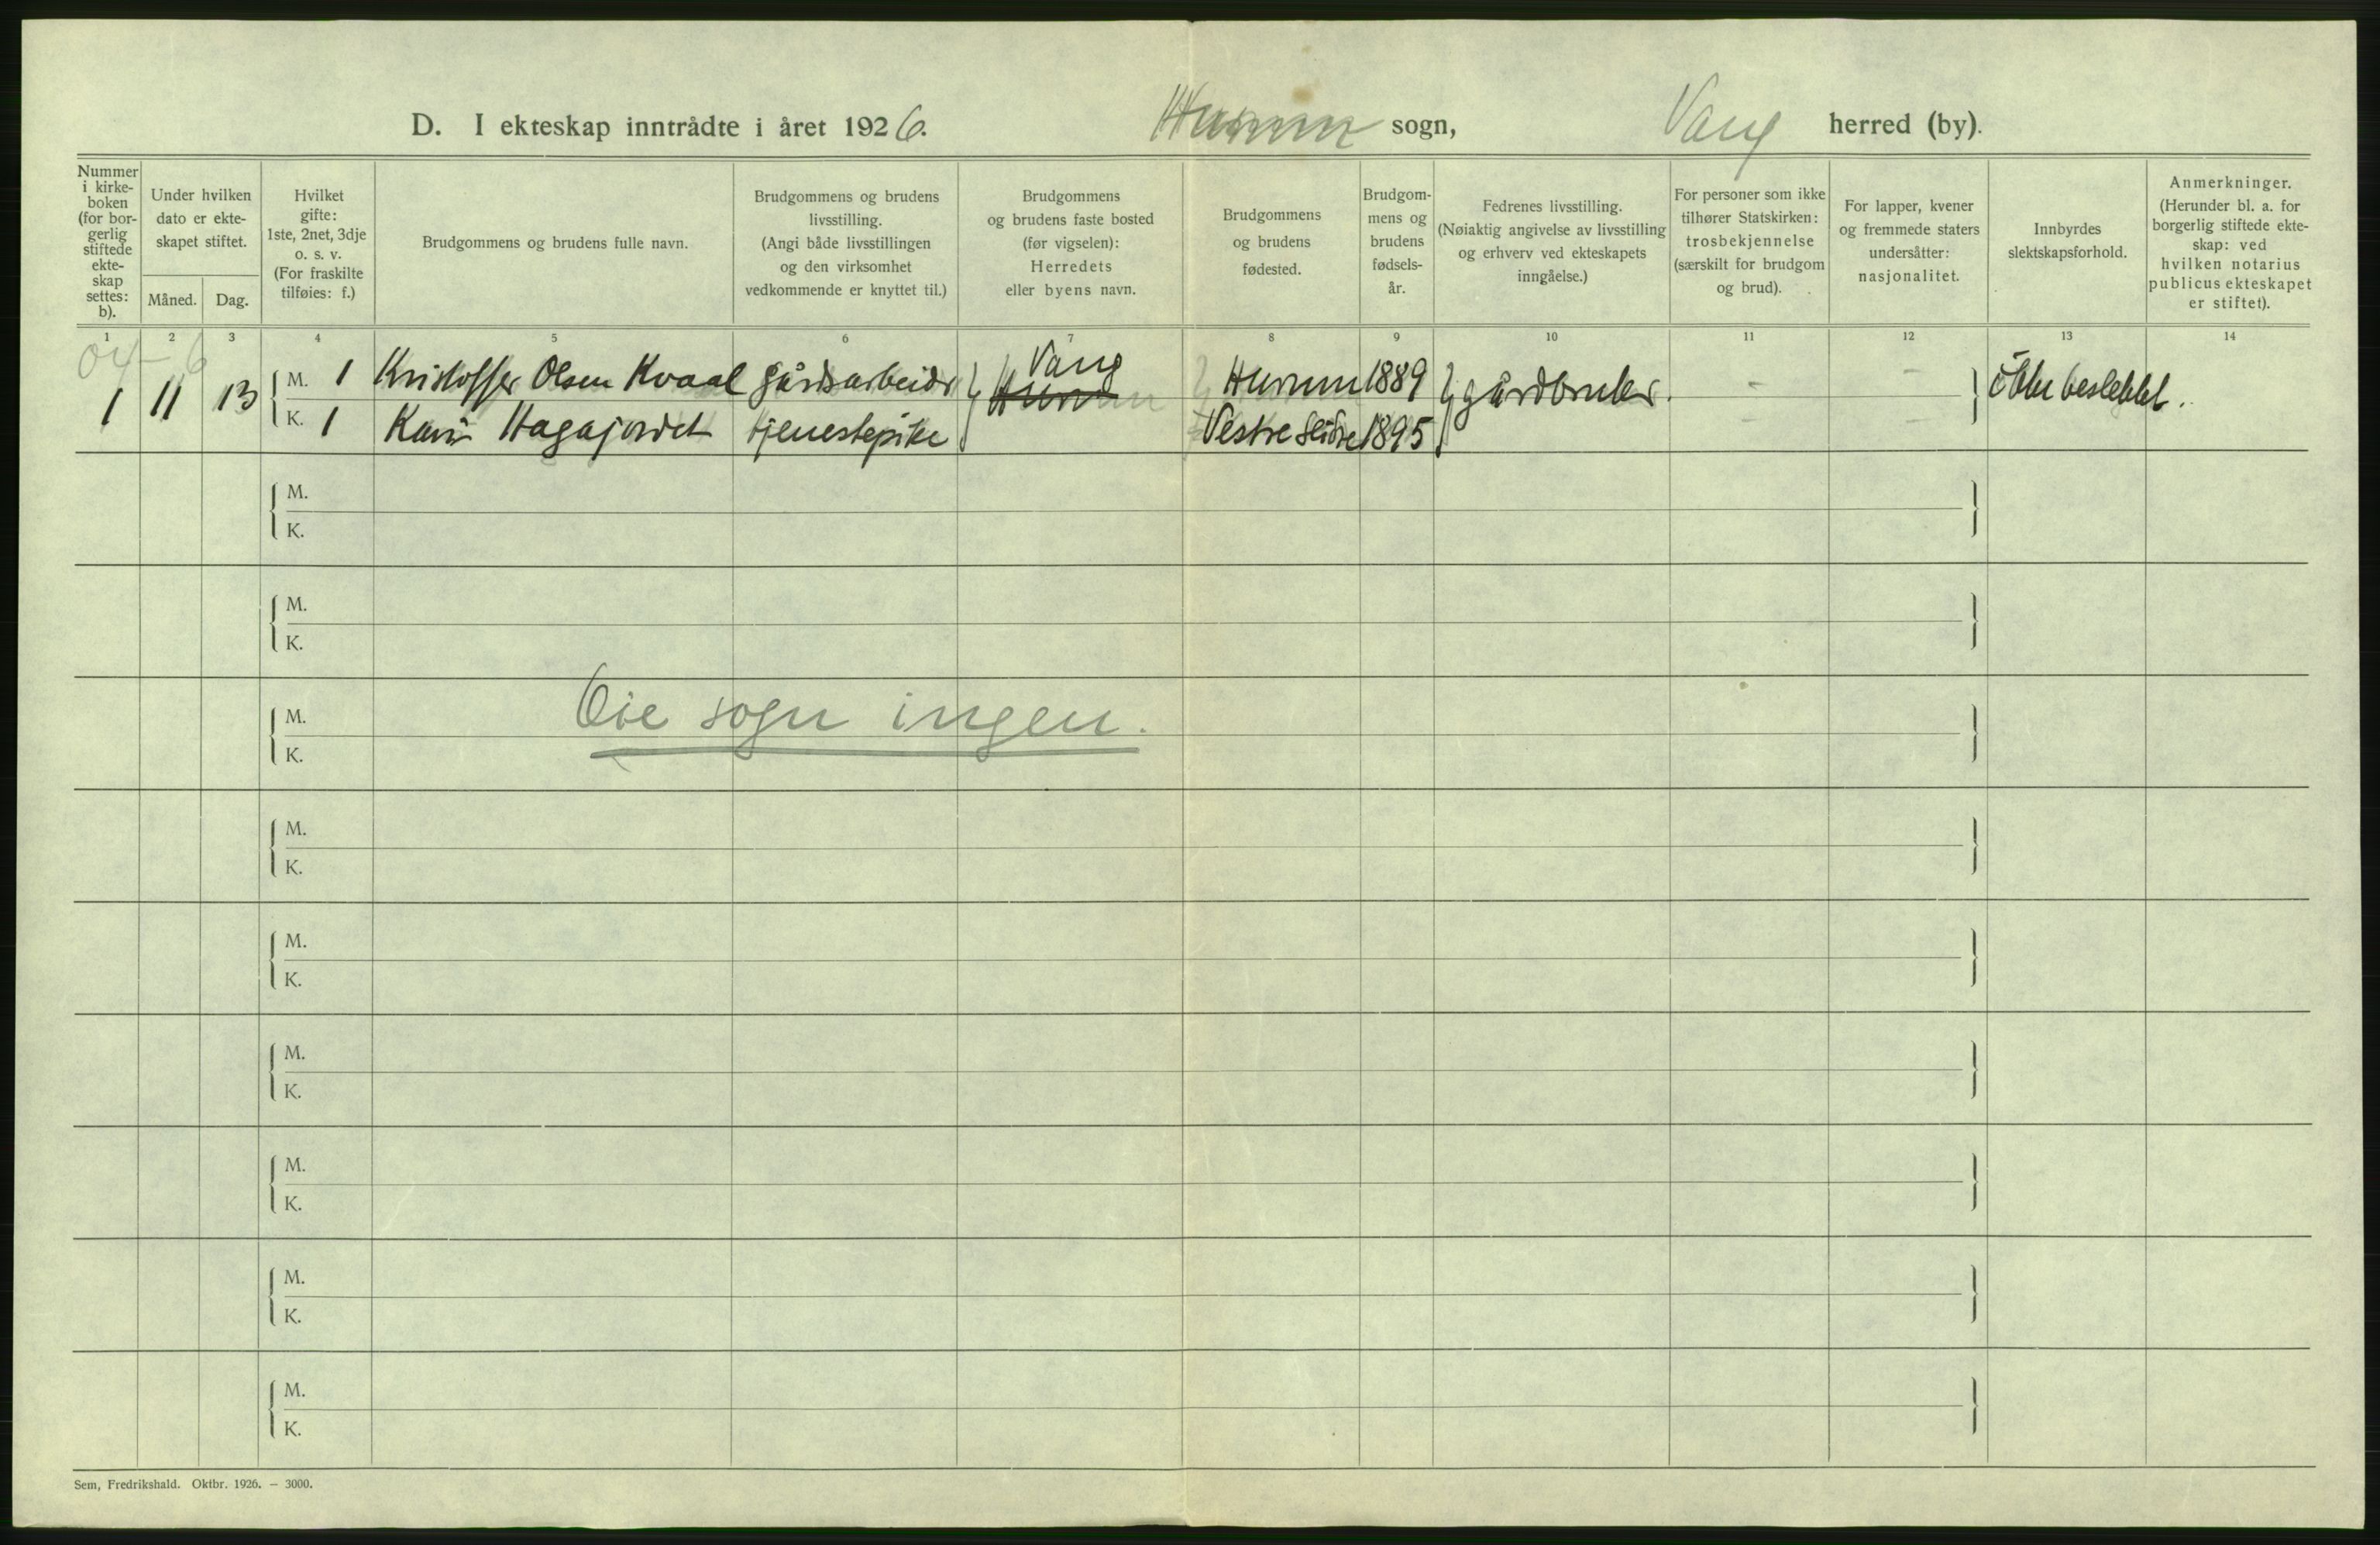 D. I ekteskap inntrådte i året 1926. Hurum sogn, Vang herred (by).
Nummer i kirke-boken (for bor-gerlig stiftede ekte-skap settes: b).
Under hvilken dato er ekte-skapet stiftet.
Måned. Dag.
Hvilket gifte: 1ste, 2net, 3dje o. s. v. (For fraskilte tilføies: f.)
Brudgommens og brudens fulle navn.
Brudgommens og brudens livsstilling. (Angi både livsstillingen og den virksomhet vedkommende er knyttet til.)
Brudgommens og brudens faste bosted (før vigselen): Herredets eller byens navn.
Brudgommens og brudens fødested.
Brudgom-mens og brudens fødsels-år.
Fedrenes livsstilling. (Nøiaktig angivelse av livsstilling og erhverv ved ekteskapets inngåelse.)
For personer som ikke tilhører Statskirken: trosbekjennelse (særskilt for brudgom og brud).
For lapper, kvener og fremmede staters undersåtter: nasjonalitet.
Innbyrdes slektskapsforhold.
Anmerkninger. (Herunder bl. a. for borgerlig stiftede ekte-skap: ved hvilken notarius publicus ekteskapet er stiftet).
1 2 3 4 5 6 7 8 9 10 11 12 13 14
04-6
1 11 13 M. 1 Kristoffer Olsen Kvaal gårdsarbeider Vang Hurum 1889 gårdbruker. - - ikke beslektet.
K. 1 Kari Hagajordet tjenestepike Vestre Slidre 1895 - -
M.
K.
M.
K.
M.
Øie sogn ingen.
K.
M.
K.
M.
K.
M.
K.
M.
K.
M.
K.
M.
K.
Sem, Fredrikshald. Oktbr. 1926. — 3000.